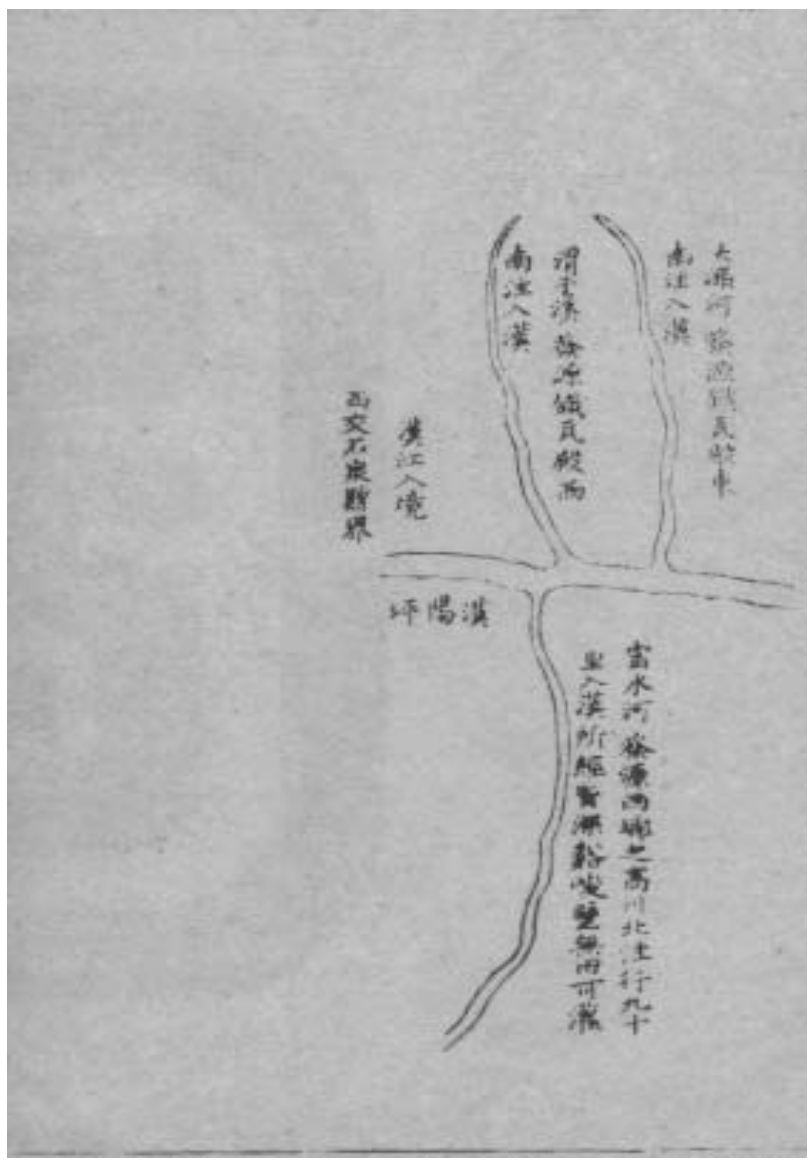 大河發源鐵瓦殿東
南注入漢
渭溪發源鐵瓦殿西
南注入漢
漢江入境
西交石泉縣界
漢陽坪
富水河發源西鄉之高川北注行九十
里入漢所經皆深谿峻壁無田可灌